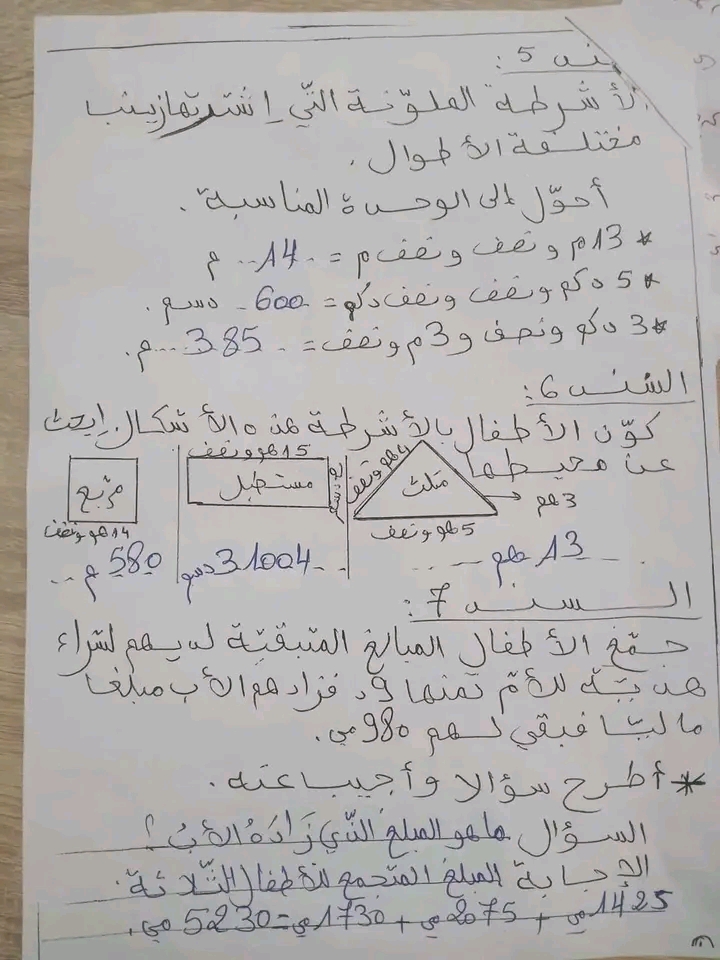 سند 5 :
الأشرطة الملوّنة التّي إشترتها زينب
مختلفة الأطوال .
أحوّل إلى الوحدة المناسبة .
* 13م ونصف ونصف م = ..14.. م
* 5 دكم ونصف ونصف دكم = 600.. دسم .
* 3 دكم ونصف و3م ونصف = ..385.. م .
السّند 6 :
كوّن الأطفال بالأشرطة هذه الأشكال. إبحث
عن محيطها
4هم ونصف
مثلث
3هم
5هم ونصف
13 هم
15هم ونصف
مستطيل
31004 دسم
مربّع
14هم ونصف
580 م
السند 7 :
جمّع الأطفال المبالغ المتبقيّة لديهم لشراء
هديّة للأمّ ثمنها 9د فزادهم الأب مبلغا
ماليّا فبقي لهم 980مي .
* أطرح سؤالا وأجيب عنه .
السؤال ما هو المبلغ الّذي زَادَهُ الأبُ ؟
الإجابة المبلغ المتجمع للأطفال الثّلاثة .
1425مي + 2075مي + 1730مي = 5230 مي .